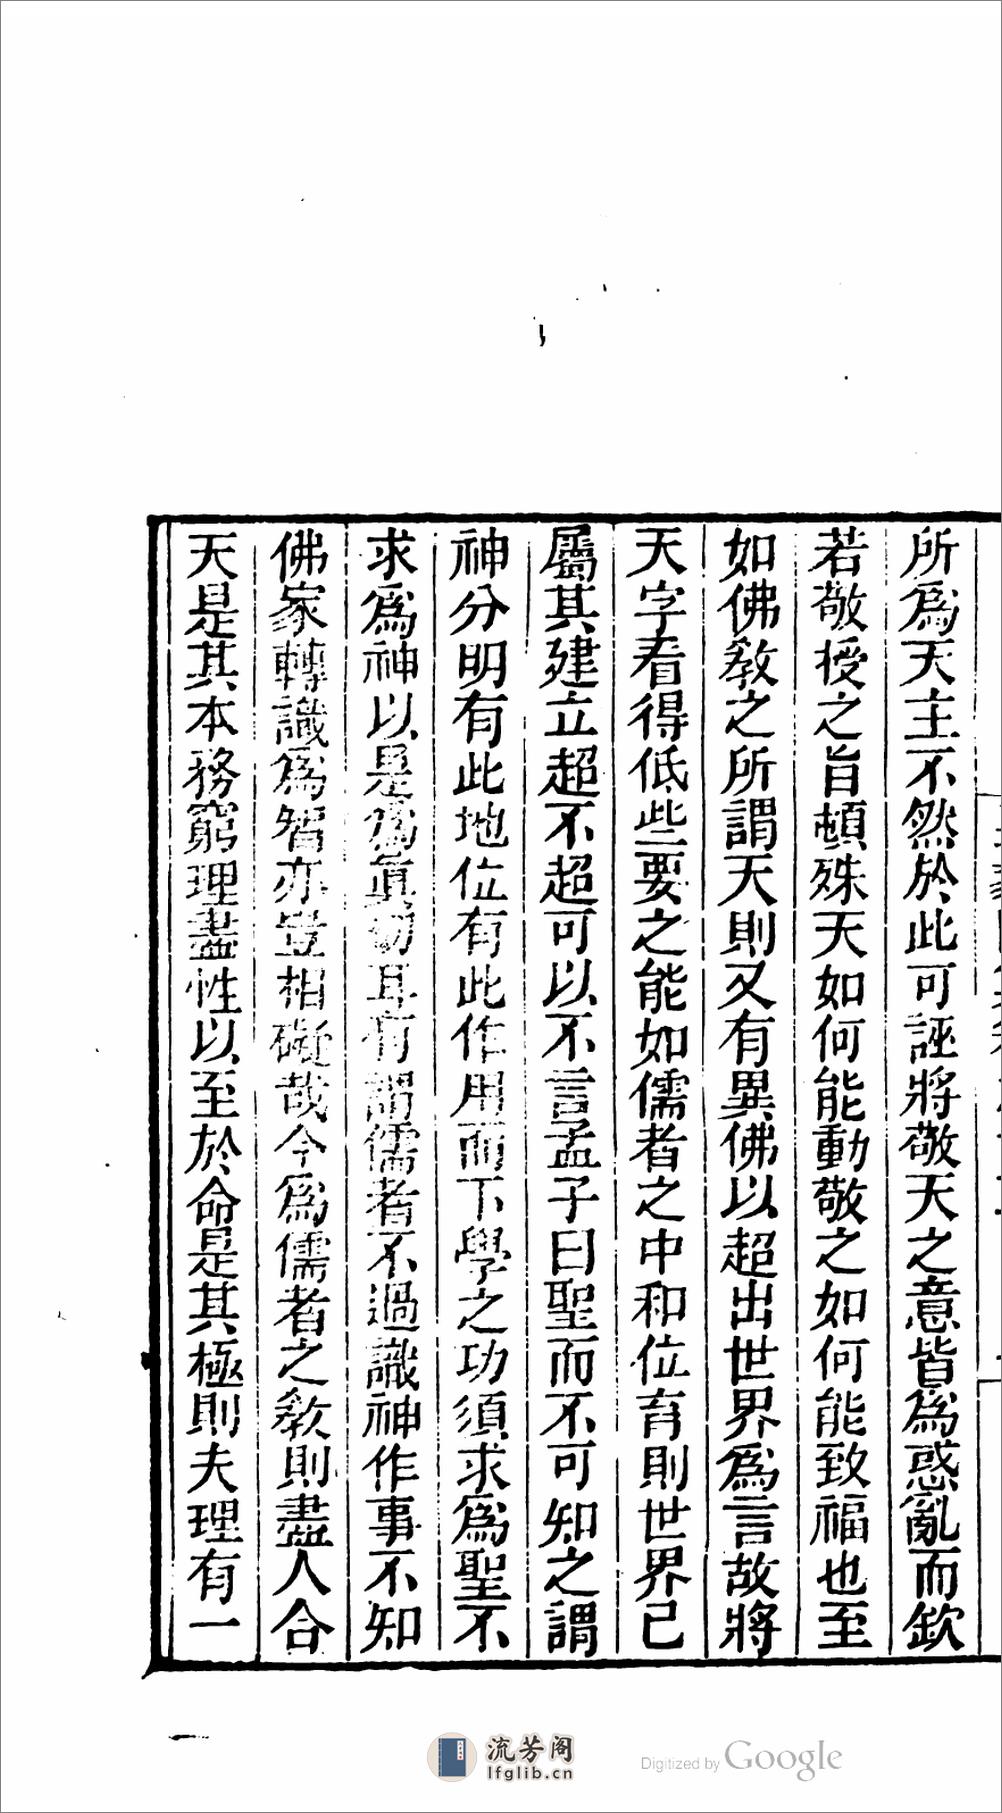 所爲天主不然於此可誣將敬天之意皆爲惑亂而欽
若敬授之旨頓殊天如何能動敬之如何能致福也至
如佛教之所謂天則又有異佛以超出世界爲言故將
天字看得低些要之能如儒者之中和位育則世界已
屬其建立超不超可以不言孟子曰聖而不可知之謂
神分明有此地位有此作用而下學之功須求爲聖不
求爲神以是爲眞切耳有謂儒者不過識神作事不知
佛家轉識爲智亦豈相礙哉今爲儒者之教則盡人合
天是其本務窮理盡性以至於命是其極則夫理有一
流芳阁
lfglib.cn
Digitized by Google